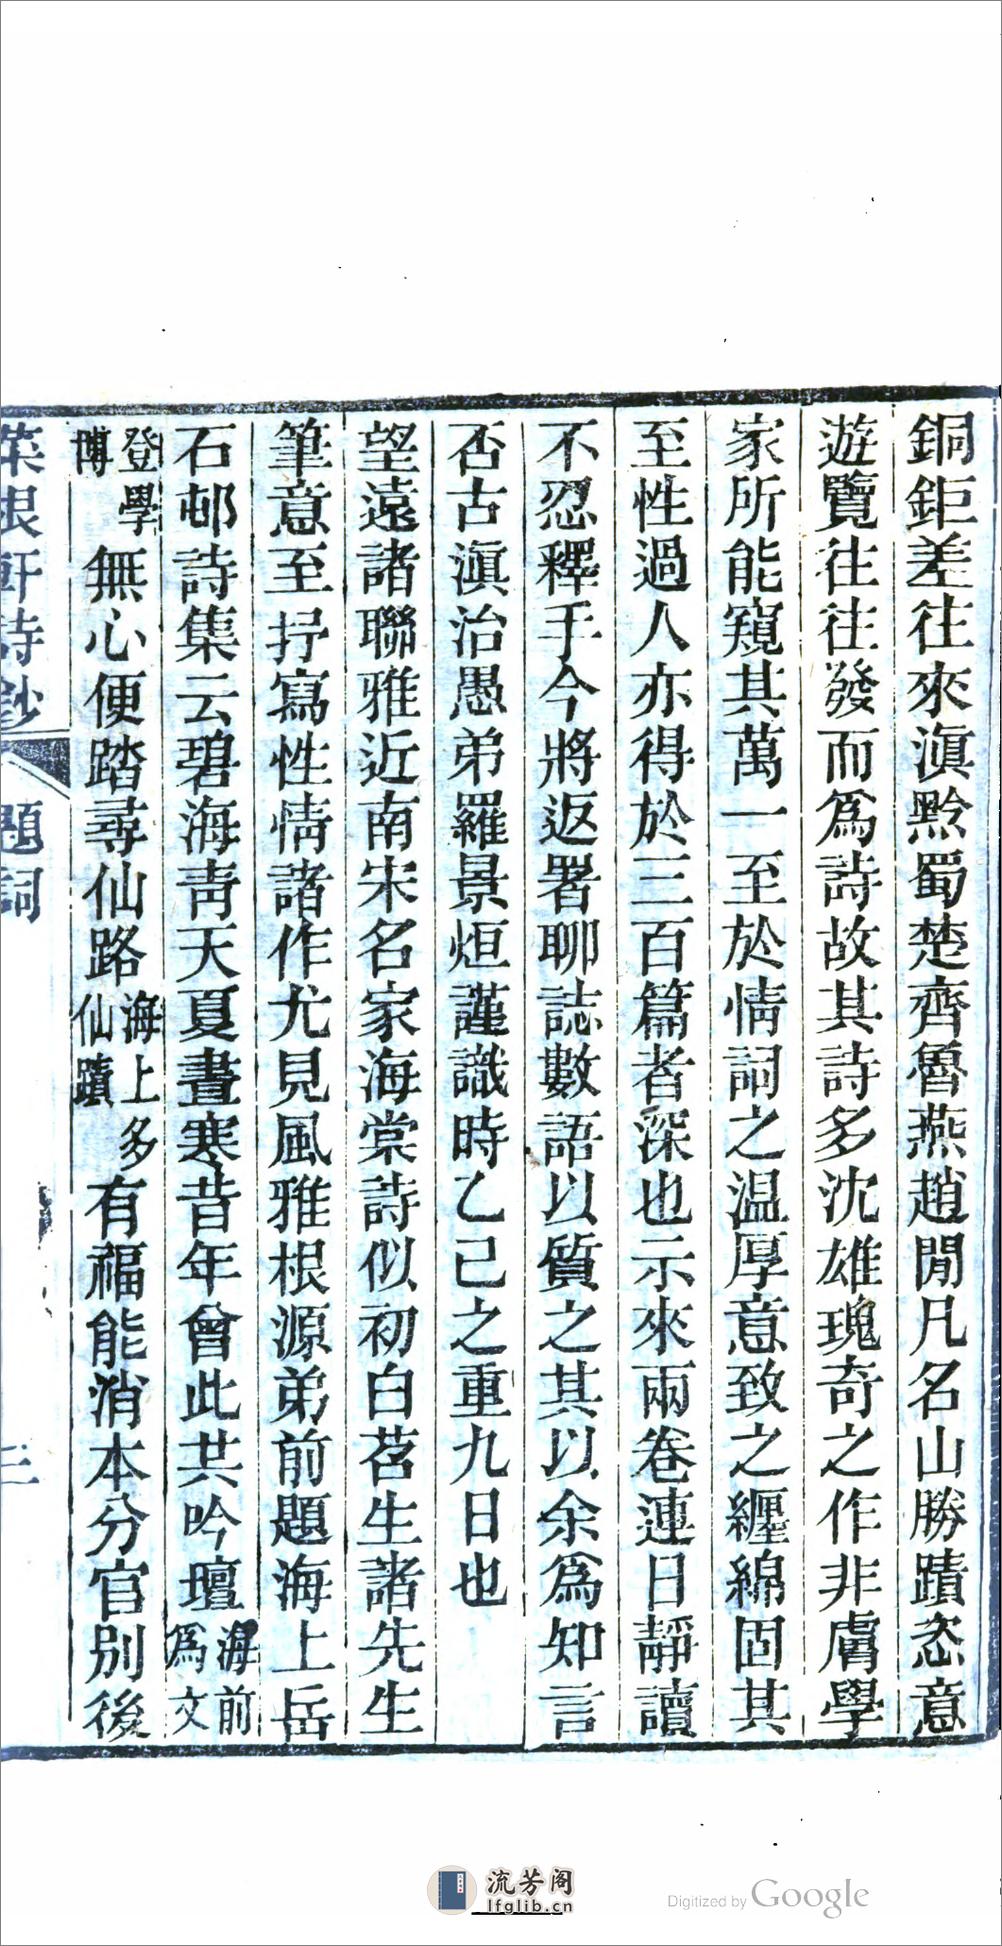 銅鉅差往來滇黔蜀楚齊魯燕趙閒凡名山勝蹟恣意
遊覽往往發而爲詩故其詩多沈雄瑰奇之作非膚學
家所能窺其萬一至於情詞之温厚意致之纏綿固其
至性過人亦得於三百篇者深也示來兩卷連日靜讀
不忍釋手今將返署聊誌數語以質之其以余爲知言
否古滇治愚弟羅景烜謹識時乙己之重九日也
望遠諸聯雅近南宋名家海棠詩似初白茗生諸先生
筆意至抒寫性情諸作尤見風雅根源弟前題海上岳
石邨詩集云碧海靑天夏晝寒昔年曾此共吟壇海前爲文
登學博無心便踏尋仙路海上多仙蹟有福能消本分官別後
菜根軒詩鈔
題詞
三
流芳阁
lfglib.cn
Digitized by Google